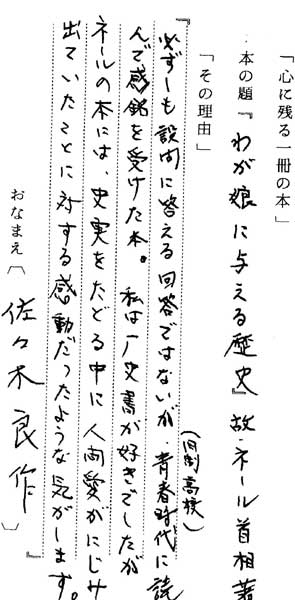 「心に残る一冊の本」
本の題『わが娘に与える歴史』故・ネール首相著
「その理由」
『必ずしも設問に答える回答ではないが、青春時代に読
(旧制高校)
んで感銘を受けた本。私は厂史書が好きでしたが
ネールの本には、史実をたどる中に人間愛がにじみ
出ていたことに対する感動だったような気がします。』
おなまえ〔佐々木良作〕